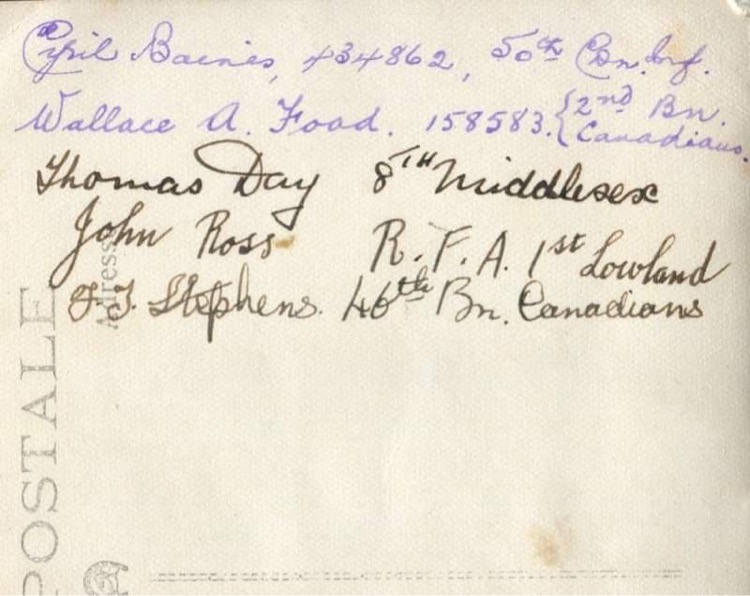 Cyril Baines, 434862, 50th Bn. Inf.
Wallace A. Food. 158583. { 2nd Bn. Canadians.
Thomas Day 8TH Middlesex
John Ross R.F.A. 1st Lowland
J.J. Stephens. 46th Bn. Canadians
POSTALE
Adress